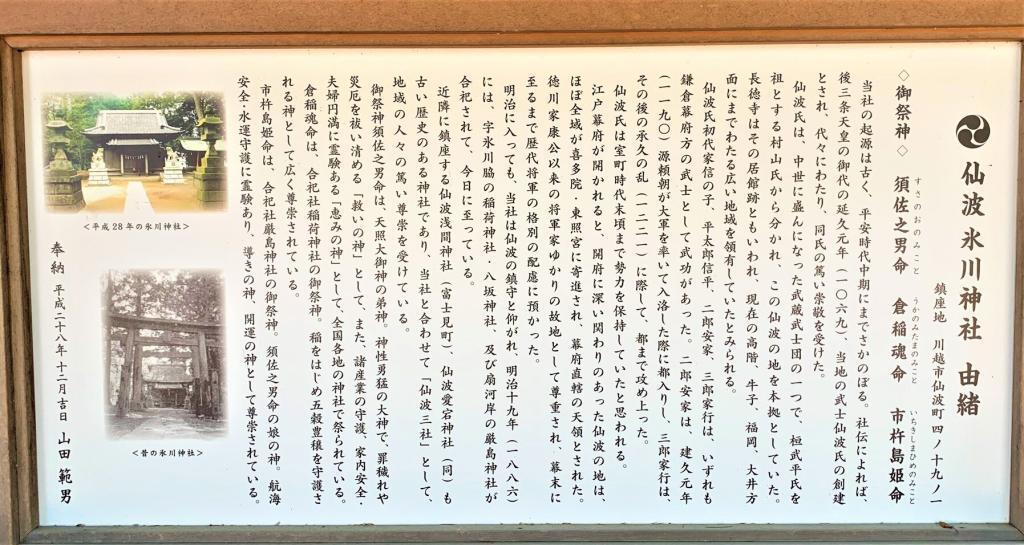 仙波氷川神社 由緒
鎮座地 川越市仙波町四ノ十九ノ一
◇御祭神◇ 須佐之男命 倉稲魂命 市杵島姫命
すさのおのみこと うかのみたまのみこと いちきしまひめのみこと
当社の起源は古く、平安時代中期にまでさかのぼる。社伝によれば、
後三条天皇の御代の延久元年(一〇六九)、当地の武士仙波氏の創建
とされ、代々にわたり、同氏の篤い崇敬を受けた。
仙波氏は、中世に盛んになった武蔵武士団の一つで、桓武平氏を
祖とする村山氏から分かれ、この仙波の地を本拠としていた。
長徳寺はその居館跡ともいわれ、現在の高階、牛子、福岡、大井方
面にまでわたる広い地域を領有していたとみられる。
仙波氏初代家信の子、平太郎信平、二郎安家、三郎家行は、いずれも
鎌倉幕府方の武士として武功があった。二郎安家は、建久元年
(一一九〇)源頼朝が大軍を率いて入洛した際に都入りし、三郎家行は、
その後の承久の乱(一二二一)に際して、都まで攻め上った。
仙波氏は室町時代末頃まで勢力を保持していたと思われる。
江戸幕府が開かれると、開府に深い関わりのあった仙波の地は、
ほぼ全域が喜多院・東照宮に寄進され、幕府直轄の天領とされた。
徳川家康公以来の将軍家ゆかりの故地として尊重され、幕末に
至るまで歴代将軍の格別の配慮に預かった。
明治に入っても、当社は仙波の鎮守と仰がれ、明治十九年(一八八六)
には、字氷川脇の稲荷神社・八坂神社、及び扇河岸の厳島神社が
合祀されて、今日に至っている。
近隣に鎮座する仙波浅間神社(富士見町)、仙波愛宕神社(同)も
古い歴史のある神社であり、当社と合わせて「仙波三社」として、
地域の人々の篤い尊崇を受けている。
御祭神須佐之男命は、天照大御神の弟神。神性勇猛の大神で、罪穢れや
災厄を祓い清める「救いの神」として、また、諸産業の守護、家内安全・
夫婦円満に霊験ある「恵みの神」として、全国各地の神社で祭られている。
倉稲魂命は、合祀社稲荷神社の御祭神。稲をはじめ五穀豊穣を守護さ
れる神として広く尊崇されている。
市杵島姫命は、合祀社厳島神社の御祭神。須佐之男命の娘の神。航海
安全・水運守護に霊験あり、導きの神、開運の神として尊崇されている。
<平成28年の氷川神社>
<昔の氷川神社>
奉納 平成二十八年 十二月吉日 山田 範男